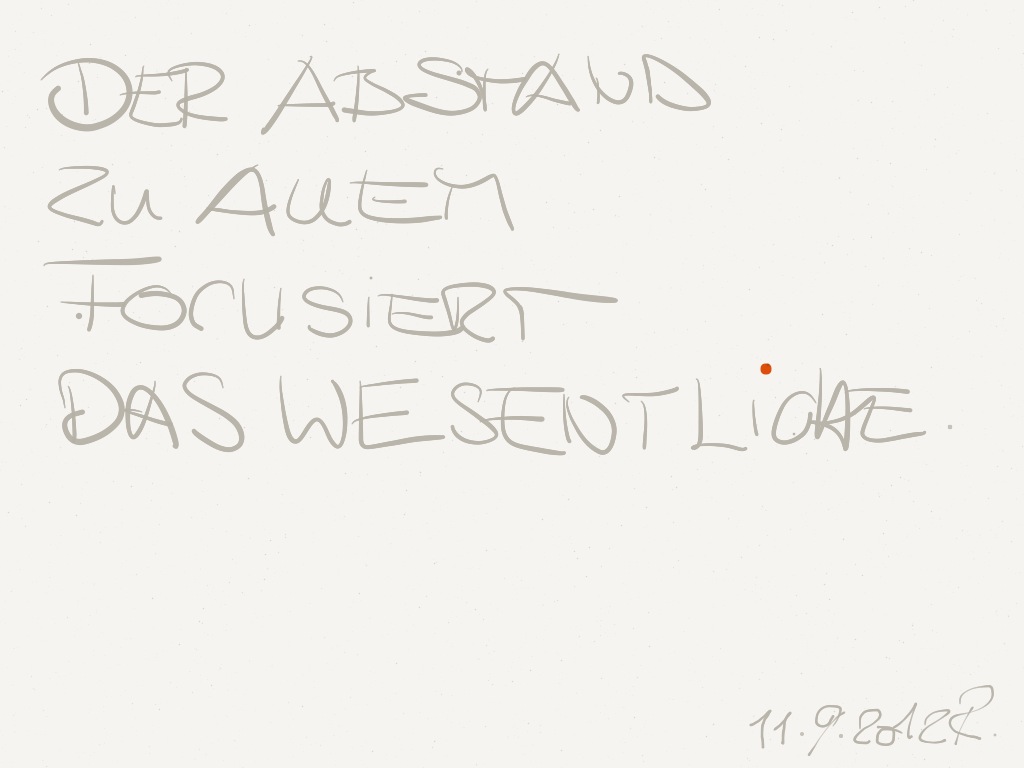 DER ABSTAND
ZU ALLEM
FOCUSIERT
DAS WESENTLiCHE.
11.9.2012 R.